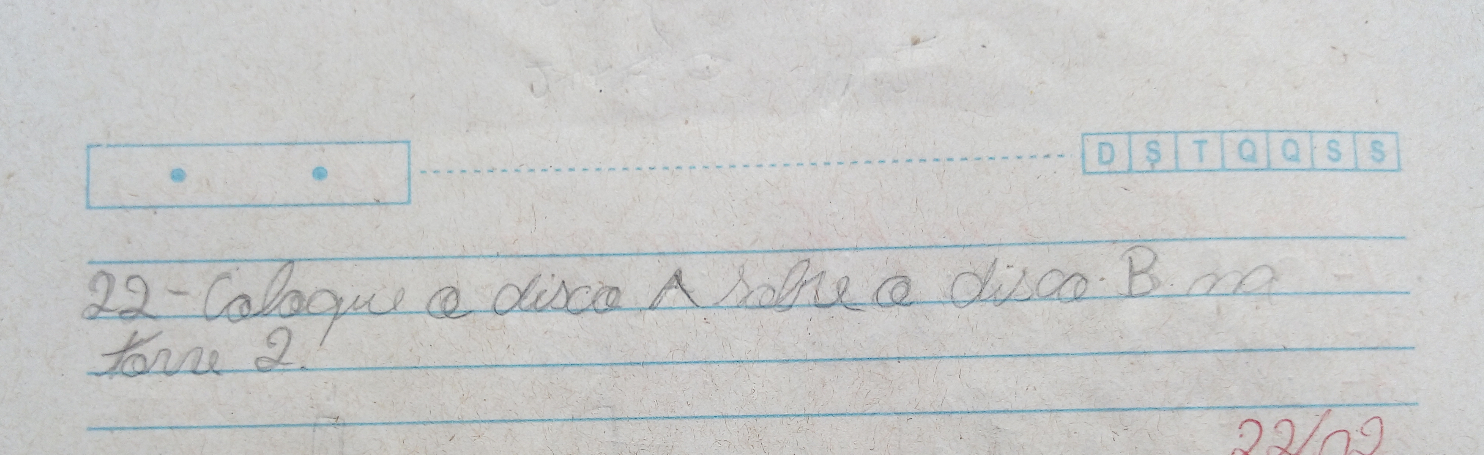 D S T Q Q S S
22-Coloque o disco A sobre o disco B na
torre 2.
22/02